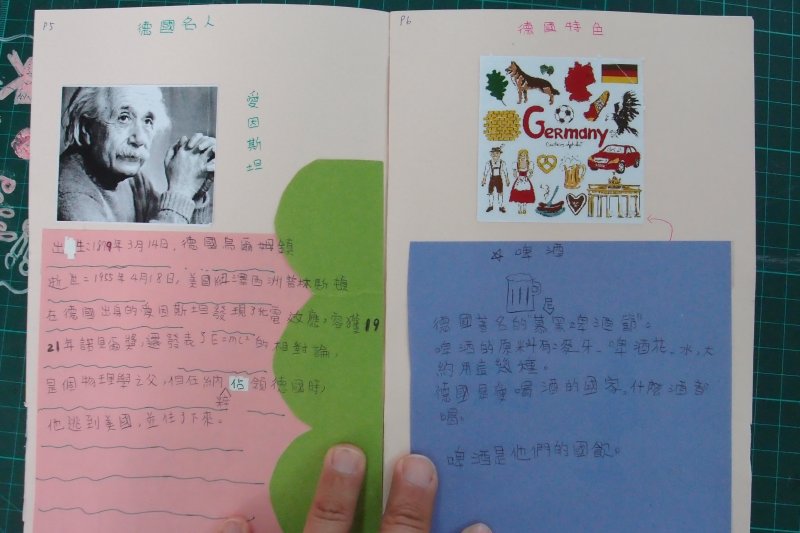 P5
德國名人
愛因斯坦
出生:1879年3月14日,德國烏爾姆鎮
逝世:1955年4月18日,美國紐澤西洲普林斯頓
在德國出身的愛因斯坦發現了光電效應,容獲19
21年諾貝爾獎,還發表了"E=mc²"的相對論,
是個物理學之父,但在納粹佔領德國時,
他逃到美國,並住了下來。
P6
德國特色
Germany
☆啤酒
德國著名的"慕黑啤酒節"。
啤酒的原料有:麥牙、啤酒花、水,大
約用這幾種。
德國是愛喝酒的國家,什麼酒都
喝,
啤酒是他們的國飲。